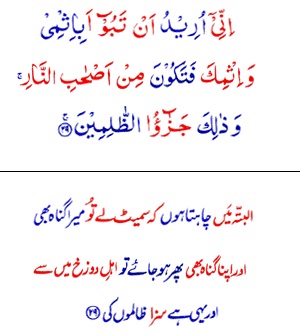 اِنِّیْۤ اُرِیْدُ اَنْ تَبُوْٓاَ بِاِثْمِیْ
وَ اِثْمِكَ فَتَكُوْنَ مِنْ اَصْحٰبِ النَّارِ ۚ
وَ ذٰلِكَ جَزٰٓؤُا الظّٰلِمِیْنَ ۚ ﴿۲۹﴾
البتہ میَں چاہتا ہوں کہ سمیٹ لے تُو میرا گناہ بھی
اور اپنا گناہ بھی پھر ہو جائے تو اہلِ دوزخ میں سے
اور یہی ہے سزا ظالموں کی ﴿۲۹﴾